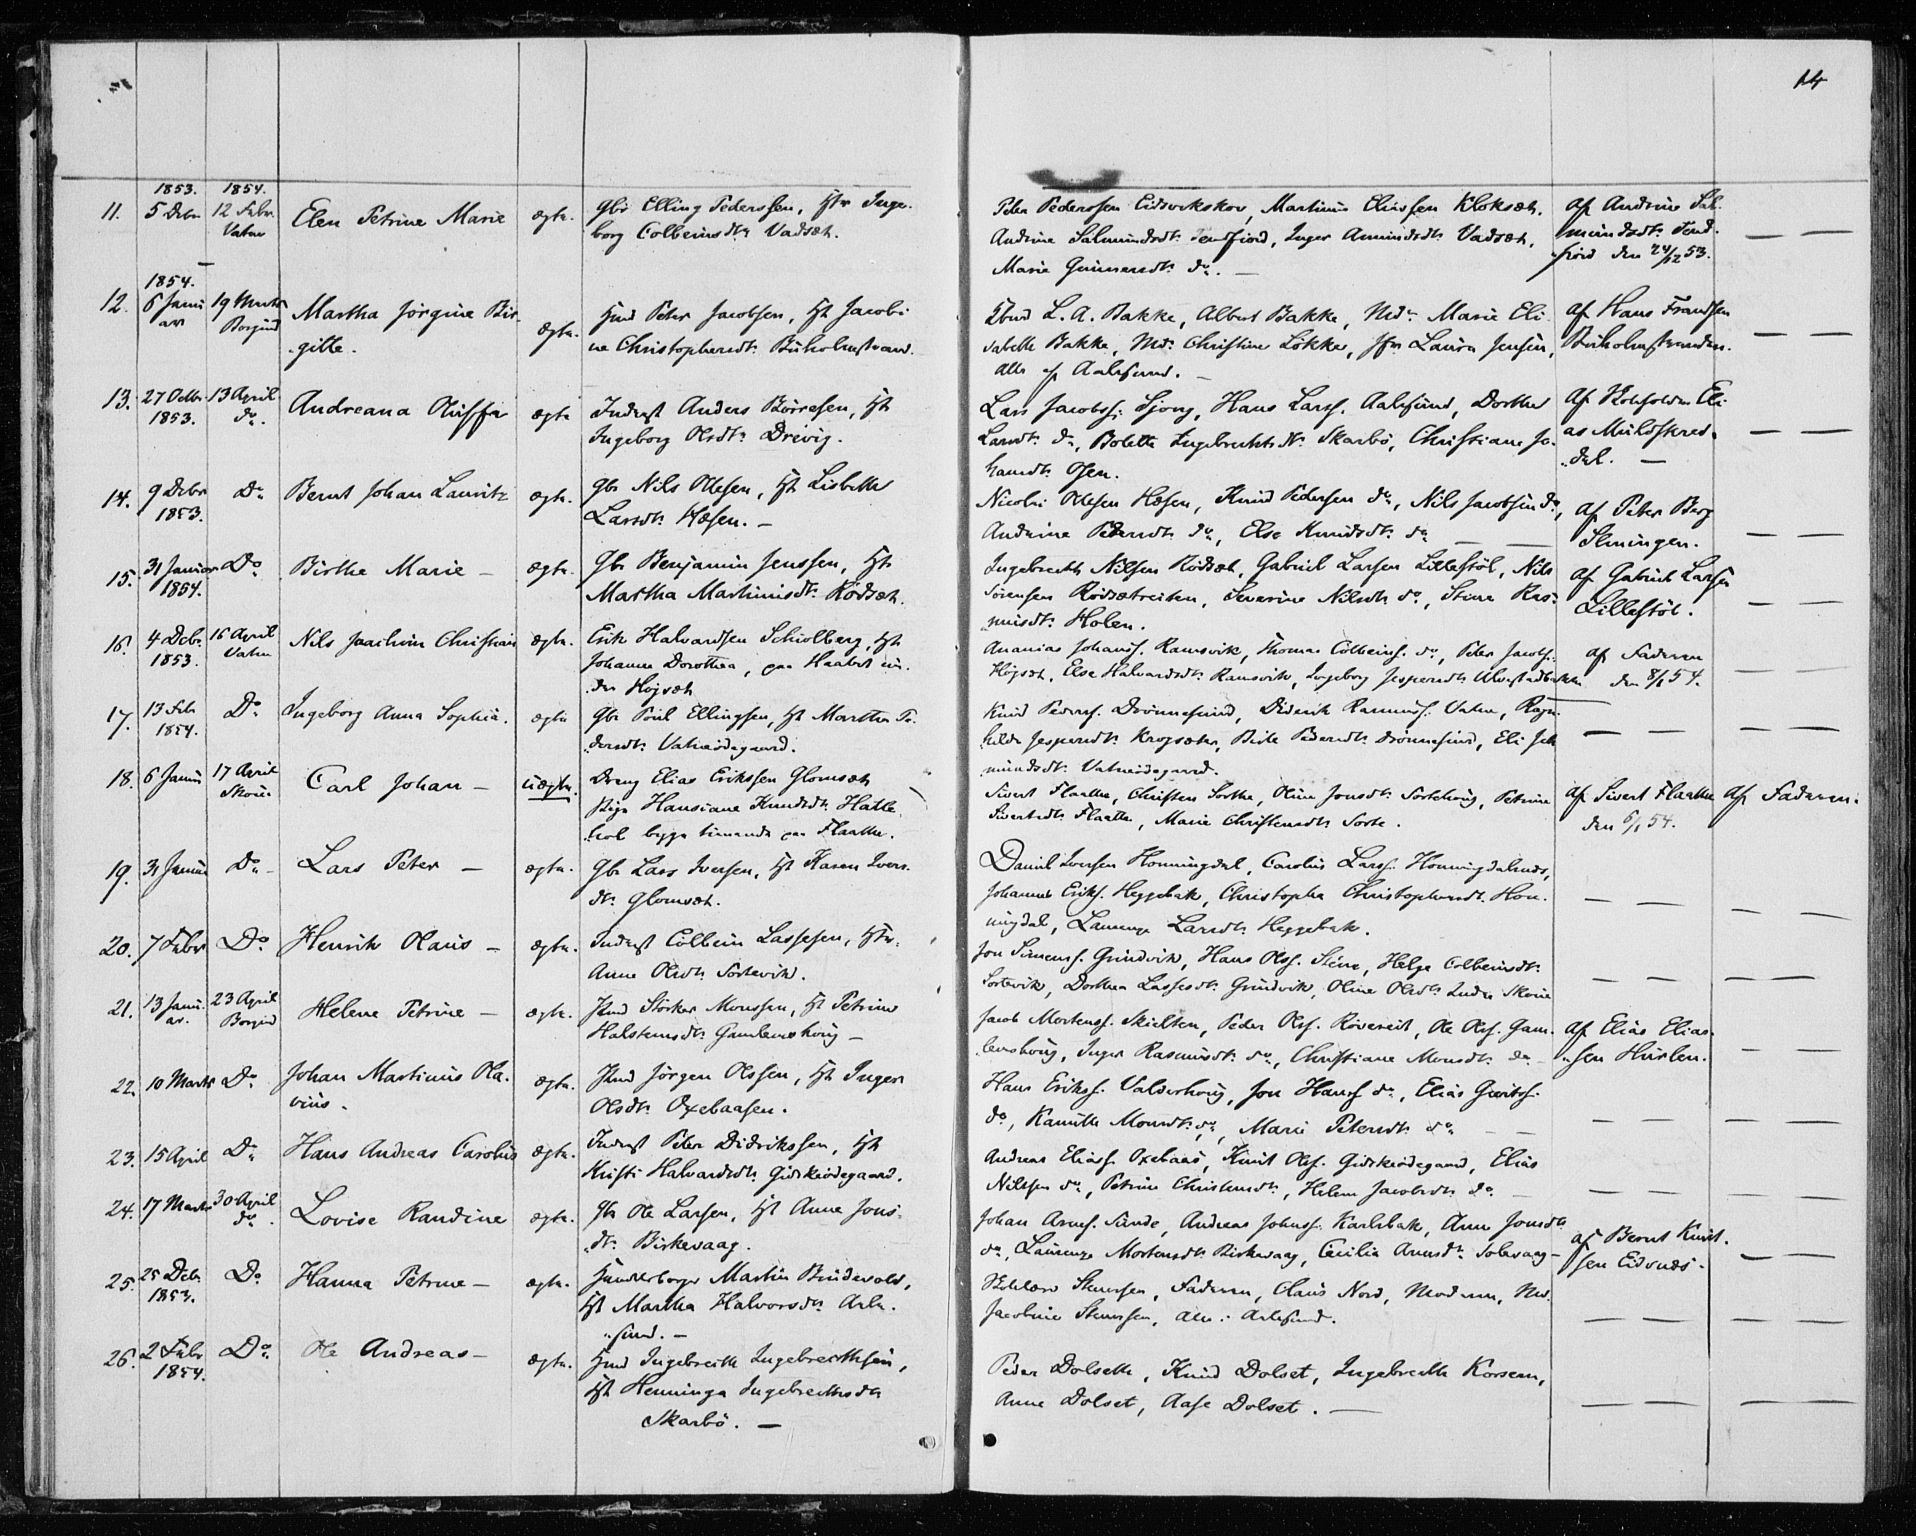 14
1853. 1854.
11. 5 Debr 12 Febr. Vatne Elen Petrine Marie ægte. Gbr Elling Pederssen, Hstr Inge-
borg Colbeinsdtr Vadset.
Peter Pederssen Eidsvikskov, Martinus Eliassen Kloksæt,
Andrine Salmundsdtr Tendfiord, Inger Amundsdtr Vadset,
Marie Gunnersdtr do. —
af Andrine Sal-
mundsdtr Tend-
fiord den 24/12 53.
1854.
12. 6 Janu-
ar 19 Marts Borgund Martha Jørgine Bir-
gitte. ægte. Hmd Peter Jacobsen, Hst Jacobi-
ne Christophersdtr Buholmstrand.
L. A. Bakke, Albert Bakke, Md. Marie Eli-
sabeth Bakke, Md. Christine Løkke, Jfr Laura Jensen,
alle af Aalesund. —
af Hans Frandsen
Buholmstranden.
13. 27 Octbr 1853. 13 April do. Andreana Oluffa ægte Inderst Anders Børresen, Hst
Ingeborg Olsdtr Drevig.
Lars Jacobss. Sjong, Hans Larss. Aalesund, Dorthe
Larsdtr do, Bolette Ingebrechtsdtr Skarbø, Christiane Jo-
hansdtr Osen.
af Skoleholder Eli-
as Muldskred-
dal. —
14. 9 Debr 1853. Do Bernt Johan Lauritz ægte. Gbr Nils Olesen, Hst Lisbeth
Larsdtr Hesen. —
Nicolai Olesen Hesen, Knud Pedersen do, Nils Jacobsen do,
Andrine Pedersdtr do, Else Knudsdtr do
af Peter Berg
Slyningen.
15. 31 Januar 1854. Do Birthe Marie — ægte. Gbr Benjamin Jenssen, Hst
Martha Martinusdtr Rødsæt.
Ingebrecht Nilsen Rødset, Gabriel Larsen Lillestøl, Nils
Sørensen Rødsetreiten, Severine Nilsdtr do, Stine Ras-
musdtr Holen.
af Gabriel Larsen
Lillestøl.
16. 4 Debr. 1853. 16 April Vatne Nils Joachim Christian ægte. Erik Halvardsen Schiolberg, Hst
Johanne Dorothea, paa Haabet un-
der Højsæt
Ananias Johanss. Ramsvik, Thomas Colbeins. do, Peter Jacobs.
Højsæt, Else Halvardsdtr Ramsvik, Ingeborg Jespersdtr Alvestadbakke
af Faderen
den 8/1 54.
17. 13 Febr 1854. Do Ingeborg Anna Sophia. ægte Gbr Poul Ellingsen, Hst Marthe Pe-
dersdtr Vatneødegaard.
Knud Peders. Drønnesund, Diderik Rasmuss. Vatne, Ragn-
hilde Jespersdtr Krogsæter, Birte Pedersdtr Drønnesund, Eli Sal-
mundsdtr Vatneødegaard.
18. 6 Januar 17 April Skouø Carl Johan — uægte. Dreng Elias Erikssen Glomsæt
Pige Hansiane Knudsdtr Hatle-
hol begge tienende paa Flaathe.
Sivert Flaathe, Christen Sorthe, Oline Jonsdtr Sortehoug, Petrine
Sivertsdtr Flaathe, Marie Christensdtr Sorte.
af Sivert Flaathe
den 5/1 54.
af Faderen.
19. 31 Januar Do — Lars Peter — ægte. Gbr Lars Iversen, Hst Karen Ivers-
dtr Glomset.
Daniel Iversen Honningdal, Carolus Larss. Honningdalsnes,
Johannes Eriks. Heggebak, Christophe Christophersdtr Hon-
ningdal, Laurenze Larsdtr Heggebak.
20. 7 Febr Do Henrik Olaus — ægte. Inderst Colbein Lassesen, Hstr.
Anne Olsdtr Sortevik.
Jon Simens. Grindvik, Hans Olss. Stene, Helge Colbeinsdtr
Sortevik, Dorthea Lassesdtr Grindvik, Oline Olsdtr Indre Skouø
21. 13 Janu-
ar. 23 April Borgund Helene Petrine — ægte. Hmd Størker Monssen, Hst Petrine
Halstensdtr Gamlemshoug —
Jacob Mortenss. Skielten, Peder Ols. Røvereit, Ole Ols. Gam-
lemshoug, Inger Rasmusdtr do, Christiane Monsdtr do —
af Elias Elias-
sen Hurlen.
22. 10 Marts Do Johan Martinus Ola-
vius. ægte. Hmd Jørgen Olssen, Hst Inger
Olsdtr Oxebaasen.
Hans Erikss. Valderhoug, Jon Hans do, Elias Gurtss.
do, Kamilla Monsdtr do, Marie Petersdtr do —
23. 15 April Do Hans Andreas Carolus ægte. Inderst Peter Didrikssen, Hst
Kristi Halvardsdtr Giskeødegaard.
Andreas Eliass. Oxebaas, Knut Ols. Giskeødegaard, Elias
Nilssen do, Petrine Christensdtr, Helene Jacobsdtr do. —
24. 17 Marts 30 April do. Lovise Randine ægte. Gbr Ole Larsen, Hst Anne Jons-
dtr Birkevaag.
Johan Arnes. Sunde, Andreas Johns. Karlsbak, Anne Jonsdtr
do, Laurenze Mortensdtr Birkevaag, Cecilia Arnesdtr Solevaag —
af Bernt Knut-
sen Eidsnes.
25. 25 Debr. 1853. Do Hanna Petrine — ægte. Handelsborger Martin Bendevold,
Hst Martha Halvorsdtr Aale-
sund. —
Stenersen, Faderen, Claus Nord, Moderen, Md.
Jacobine Stenersen, alle i Aalesund.
26. 2 Febr 1854. Do Ole Andreas — ægte. Hmd Ingebrecth Ingebrecthsen,
Hst Henninga Ingebrecthsdtr
Skarbø. —
Peder Dolseth, Knud Dolset, Ingebrecth Korsem,
Anne Dolset, Aase Dolset. —